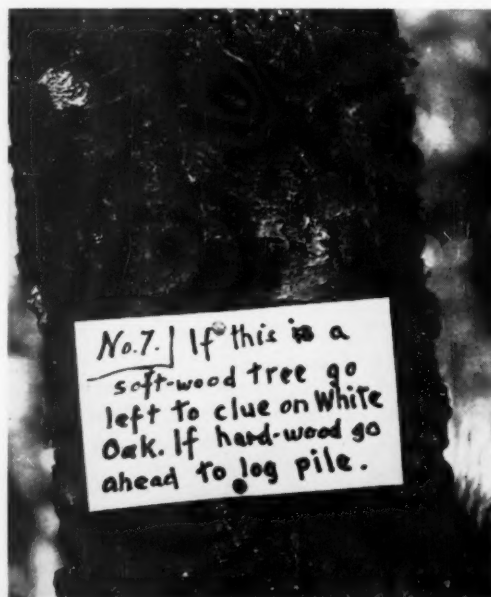 No.7. If this is a
soft-wood tree go
left to clue on White
Oak. If hard-wood go
ahead to log pile.